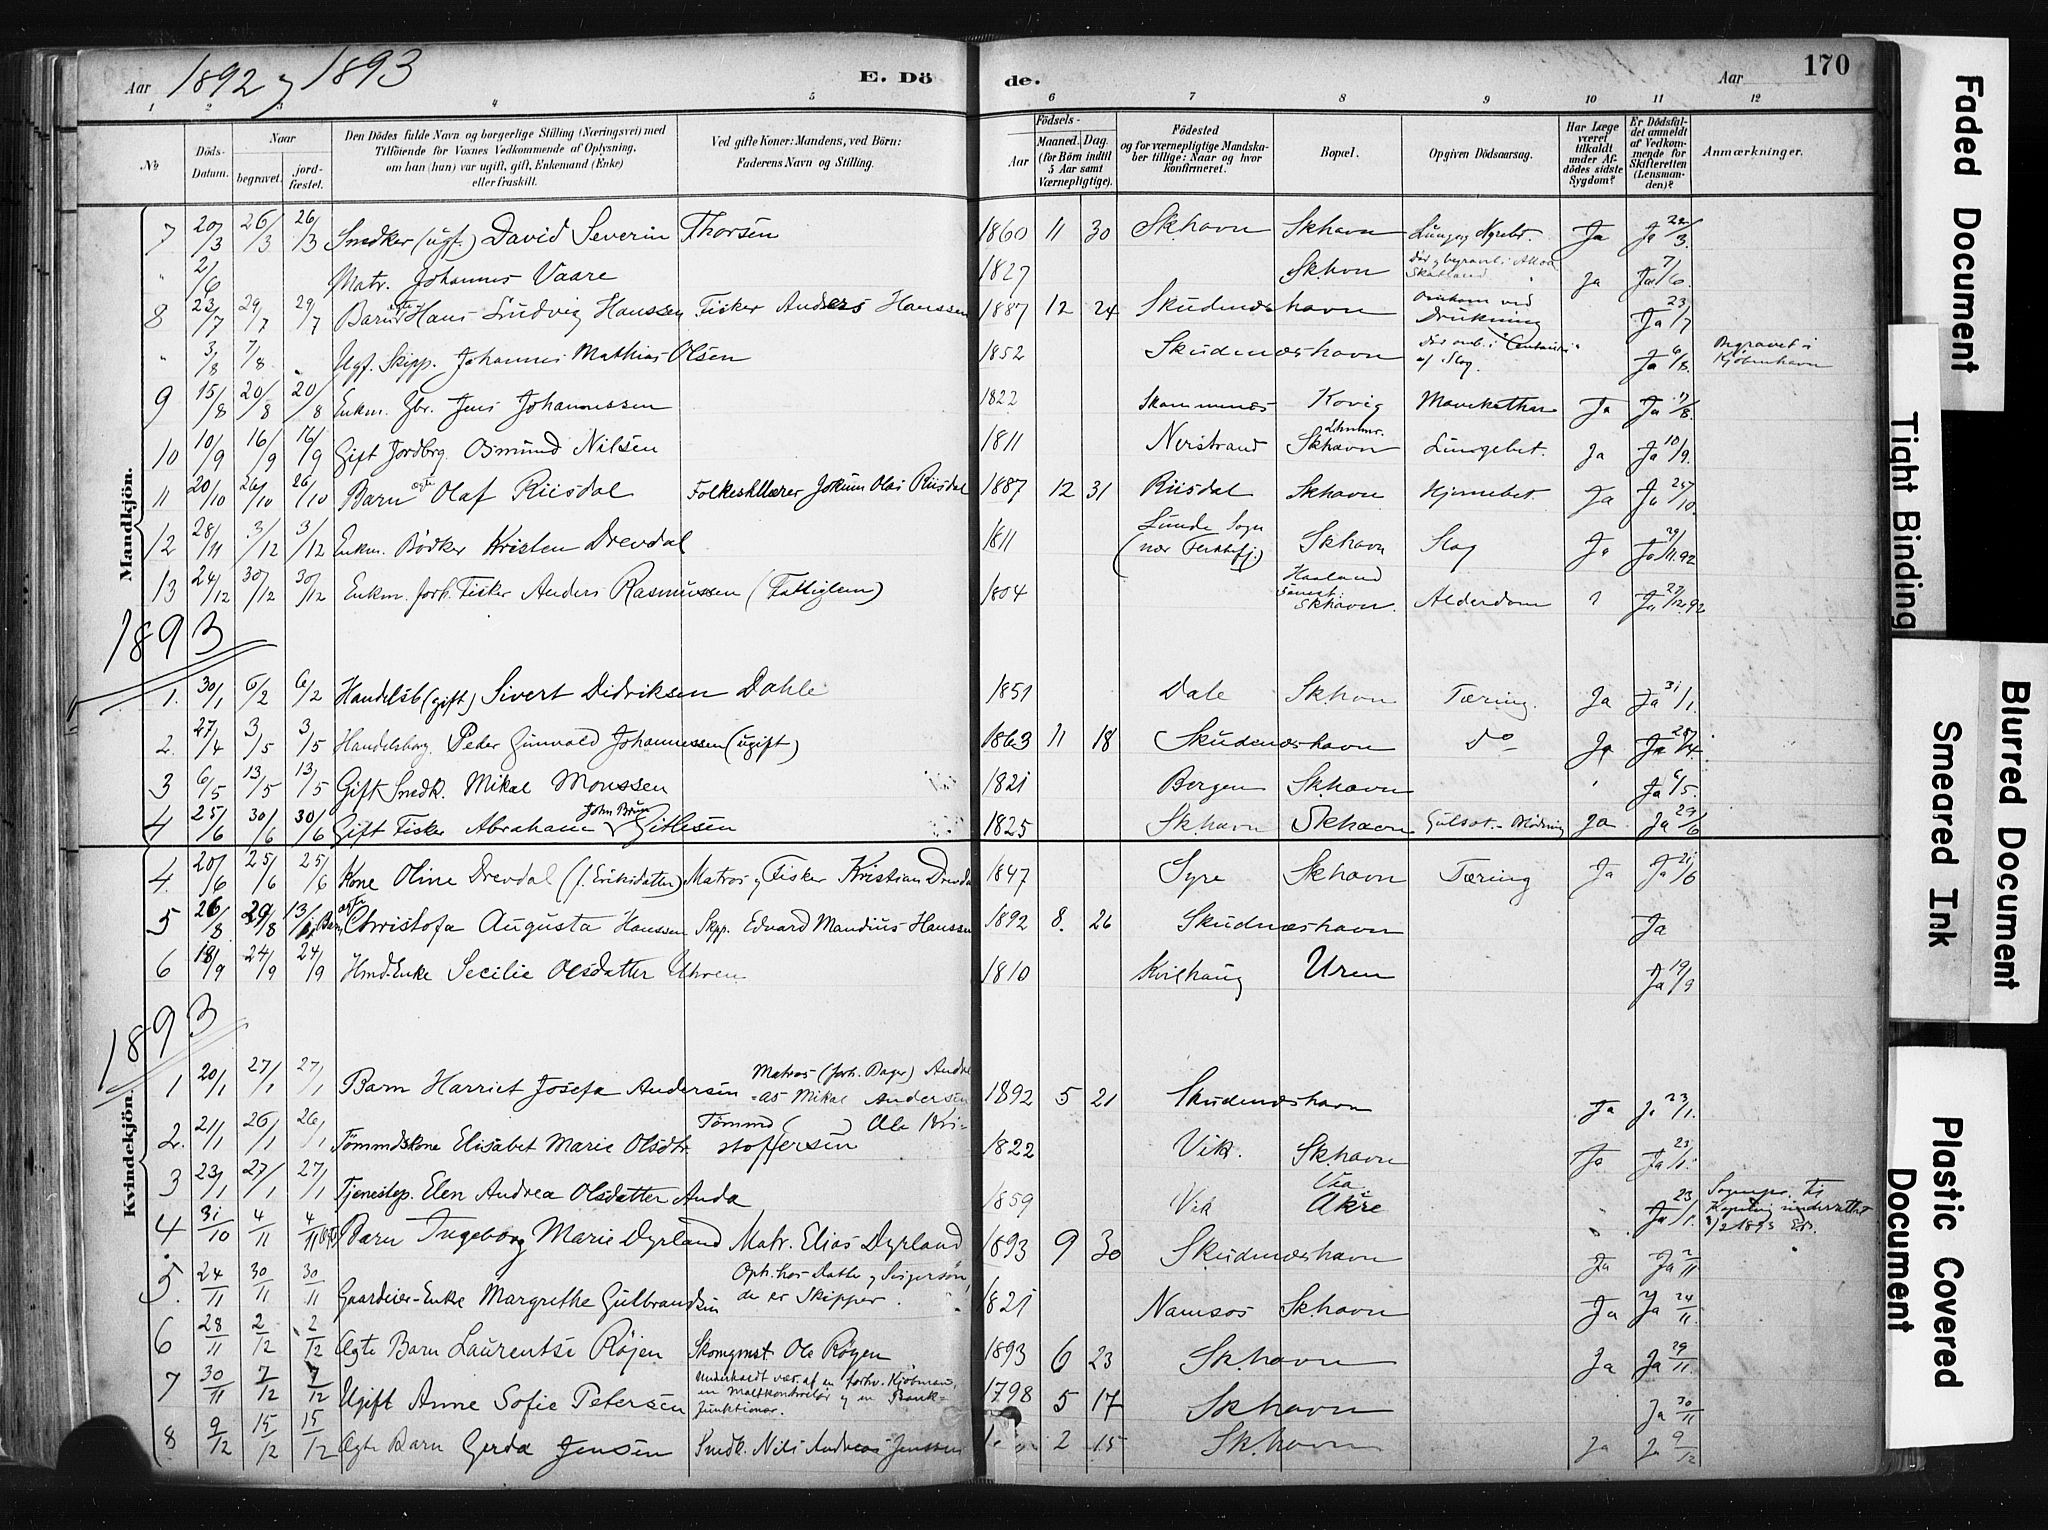 Aar 1892 og 1893 E. Dö de. Aar 170
1 2 3 4 5 6 7 8 9 10 11 12
No
Döds-Datum.
Naar
begravet.
jord-fæstet.
Den Dödes fulde Navn og borgerlige Stilling (Næringsvei) med
Tilföiende for Voxnes Vedkommende af Oplysning,
om han (hun) var ugift, gift, Enkemand (Enke)
eller fraskilt.
Ved gifte Koner: Mandens, ved Börn:
Faderens Navn og Stilling.
Födsels-
Aar
Maaned. Dag.
(for Börn indtil
5 Aar samt
Værnepligtige).
Födested
og for værnepligtige Mandska-
ber tillige: Naar og hvor
konfirmeret.
Bopæl.
Opgiven Dödsaarsag.
Har Læge
været
tilkaldt
under Af-
dödes sidste
Sygdom?
Er Dödsfal-
det anmeldt
af Vedkom-
mende for
Skifteretten
(Lensman-
den)?
Anmærkninger.
Mandkjön.
7 20/3 26/3 26/3 Snedker (ugf.) David Severin Thorsen 1860 11 30 Sk.havn Skhavn Ja Ja 22/3.
" 2/6 Matr. Johannes Vaare 1827 Sk.havn Skotland Ja Ja 7/6.
8 23/7 29/7 29/7 Barn ægte Hans Ludvig Hanssen Fisker Anders Hanssen 1887 12 24 Skudenæshavn Omkom ved Drukning Ja 23/7
" 3/8 7/8 Ugf. Skipp. Johannes Mathias Olsen 1852 Skudenæshavn af Slag. Ja 6/8. Begravet i Kjöbenhavn
9 15/8 20/8 20/8 Enkm. Gbr. Jens Johannessen 1822 Kovig Mavekathar Ja Ja 17/8.
10 10/9 16/9 16/9 Gift Jordbrg. Osmund Nilsen 1811 Nerstrand Skhavn Lungebet. Ja Ja 10/9.
11 20/10 26/10 26/10 Barn ægte Olaf Riisdal Folkeskllærer Jokum Olai Riisdal 1887 12 31 Riisdal Skhavn Hjernebet Ja Ja 25/10.
12 28/11 3/12 3/12 Enkm. Bödker Kristen Drevdal 1811 Lunde Sogn (nær Flekkefj.) Skhavn Slag Ja Ja 29/11.92
13 24/12 30/12 30/12 Enkm. forh. Fisker Anders Rasmussen (Fattiglem) 1804 Skhavn. Alderdom ? Ja 27/12 92
1893
1. 30/1 6/2 6/2 Handelsb (gift) Sivert Didriksen Dahle 1851 Dale Sk.havn Tæring. Ja Ja 31/1.
2. 27/4 3/5 3/5 Handelsborg. Peder Gunvald Johannessen (ugift) 1863 11 18 Skudenæshavn Do Ja Ja 28/4.
3 6/5 13/5 13/5 Gift Snedk. Mikal Monssen 1821 Bergen Sk.havn Ja 6/5.
4 25/6 30/6 30/6 Gift Fisker Abraham John Brun Gitlesen 1825 Sk.havn Skhavn Gulsot.- Blödning Ja Ja 27/6
Kvindekjön.
4. 20/6 25/6 25/6 Kone Oline Drevdal (f. Eriksdatter) Matros og Fisker Kristian Drevda 1847 Syre Skhavn Tæring Ja Ja 21/6
5 26/8 29/8 13/ Barn ægte Christofa Augusta Hanssen Skpp. Edvard Mandius Hanssen 1892 8. 26 Skudenæshavn Ja
6 18/9 24/9 24/9 Hmd.Enke Secilie Olsdatter Uhren 1810 Kvilhaug Uren Ja 19/9
1893
1 20/1 27/1 27/1 Barn Harriet Josefa Andersen Matros (forh. Bager) Andre-as Mikal Andersen 1892 5 21 Skudenæshavn Ja Ja 23/1.
2. 21/1 26/1 26/1 Tömmdskone Elisabet Marie Olsdtr Tömmd ( ) Ole Kri-stoffersen 1822 Vik. Sk.havn Ja Ja 23/1.
3 23/1 27/1 27/1 Tjenestep. Elen Andrea Olsdatter Anda 1859 Vik Via Åkre Ja 23/1. Sognepr. til underrettet 8/2 1893
4 31/10 4/11 4/11 Barn Ingeborg Marie Dyrland Matr. Elias Dyrland 1893 9 30 Skudenæshavn Ja Ja 2/11
5. 24/11 30/11 30/11 Gaardeier-Enke Margrethe Gulbrandsen 1821 Namsos Sk.havn Ja Ja 24/11.
6 28/11 2/12 2/12 Ægte Barn Laurentse Röjen Skomgmst. Ole Röyen 1893 6 23 Sk.havn Ja Ja 29/11.
7 30/11 7/12 7/12 Ugift Anne Sofie Petersen Underholdt væs. af en forhv. Kjöbmand, en Maltkontrolör og en Bank-funktionær. 1798 5 17 Skhavn Ja 30/11
8 9/12 15/12 15/12 Ægte Barn Gerda Jensen Snedk. Nils Andreas Jenssen 2 15 Sk.havn Ja Ja 9/12
Faded Document
Tight Binding
Blurred Document
Smeared Ink
Plastic Covered
Document